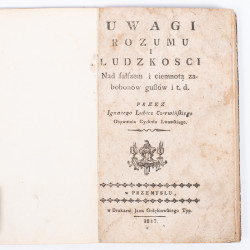 UWAGI
ROZUMU
I
LUDZKOSCI
Nad fałszem i ciemnotą za-
bobonow gusłow i t. d.
PRZEZ
Ignacego Lubicz Czerwińskiego
Obywatela Cyrkułu Lwowskiego.
w PRZEMYSLU,
w Drukarni Jana Gołębiowskiego Typ.